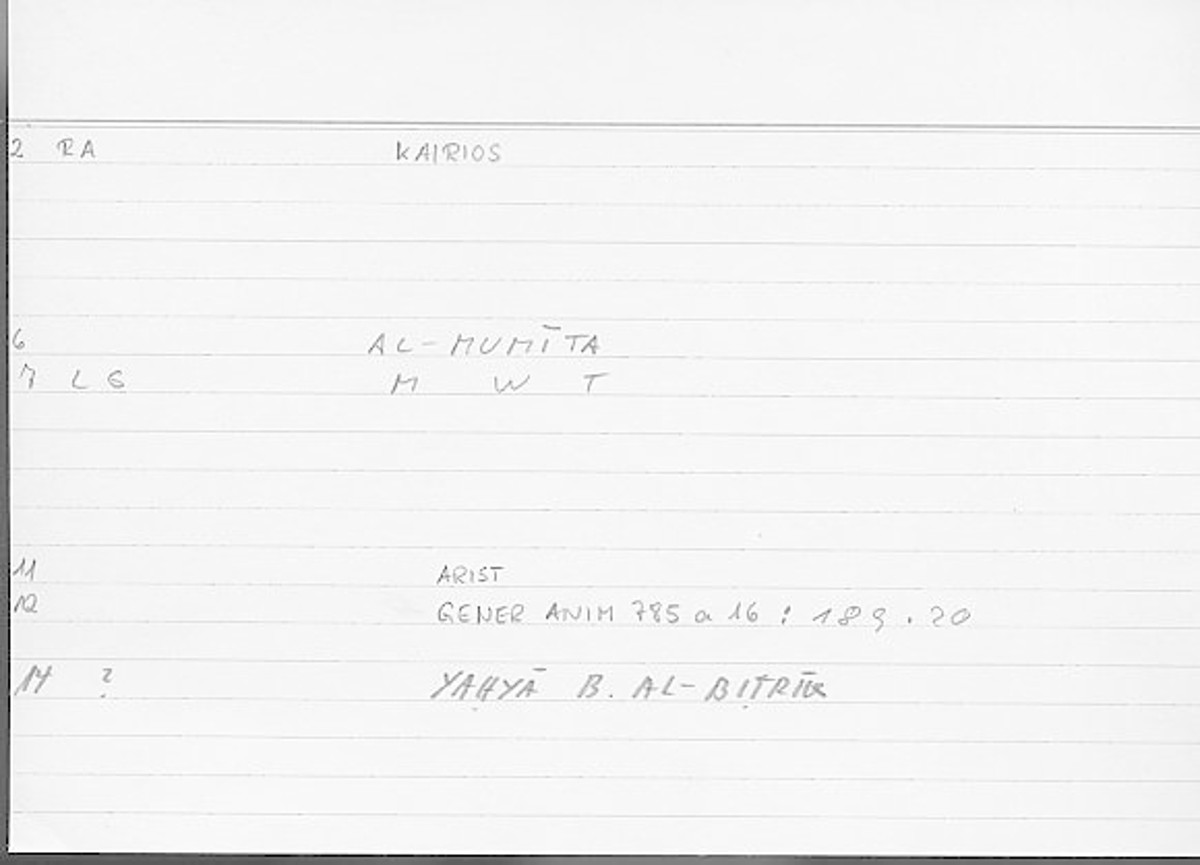 2 RA KAIRIOS
6 AL-MUMĪTA
7 LG M W T
11 ARIST
12 GENER ANIM 785 a 16 : 189.20
14 ? YAḤYĀ B. AL-BIṬRĪK